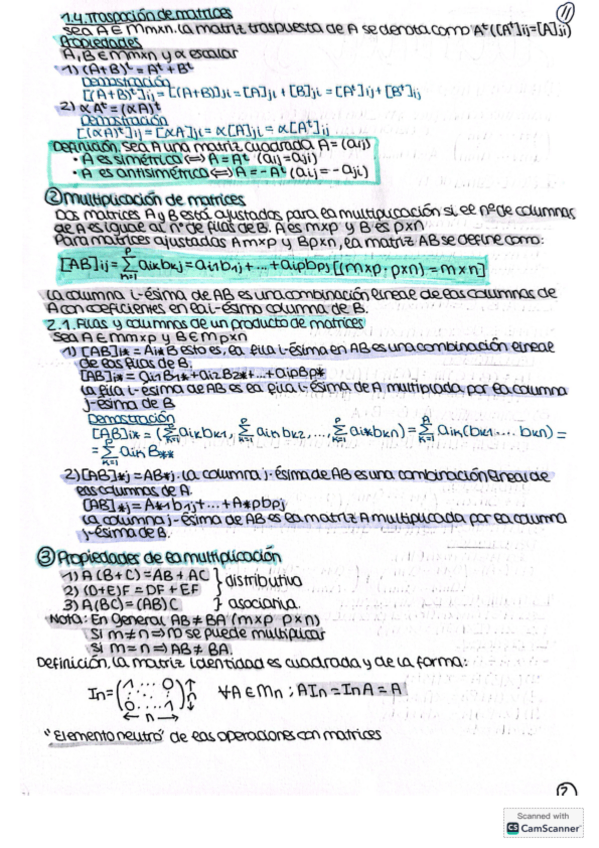 1.4. Trasposición de matrices
11
Sea A ∈ Mmxn. La matriz traspuesta de A se denota como Aᵗ ([Aᵗ]ij=[A]ji)
Propiedades
A, B ∈ Mmxn y α escalar
1) (A+B)ᵗ = Aᵗ + Bᵗ
Demostración
[(A+B)ᵗ]ij = [(A+B)]ji = [A]ji + [B]ji = [Aᵗ]ij + [Bᵗ]ij
2) αAᵗ = (αA)ᵗ
Demostración
[(αA)ᵗ]ij = [αA]ji = α[A]ji = α[Aᵗ]ij
Definición. Sea A una matriz cuadrada A = (aij)
• A es simétrica ⟺ A = Aᵗ (aij = aji)
• A es antisimétrica ⟺ A = -Aᵗ (aij = -aji)
② Multiplicación de matrices
Dos matrices A y B está ajustados para la multiplicación si el nº de columnas
de A es igual al nº de filas de B. A es mxp y B es pxn
Para matrices ajustados Amxp y Bpxn, la matriz AB se define como:
[AB]ij = Σ aikbkj = ai1b1j + ... + aipbpj [(mxp · pxn) = mxn]
La columna i-ésima de AB es una combinación lineal de las columnas de
A con coeficientes en la i-ésima columna de B.
2.1. Filas y columnas de un producto de matrices
Sea A ∈ Mmxp y B ∈ Mpxn
1) [AB]i* = Ai*B esto es, la fila i-ésima en AB es una combinación lineal
de las filas de B.
[AB]i* = ai1B1* + ai2B2* + ... + aipBp*
La fila i-ésima de AB es la fila i-ésima de A multiplicada por la columna
j-ésima de B
Demostración
[AB]i* = (Σ aikbk1, Σ aikbk2, ..., Σ aikbkn) = Σ aik(bk1 ... bkn) =
= Σ aikB**
2) [AB]*j = AB*j. La columna j-ésima de AB es una combinación lineal de
las columnas de A.
[AB]*j = A*1b1j + ... + A*pbpj
La columna j-ésima de AB es la matriz A multiplicada por la columna
j-ésima de B.
③ Propiedades de la multiplicación
1) A(B+C) = AB + AC
2) (D+E)F = DF + EF } distributiva
3) A(BC) = (AB)C } asociativa.
Nota: En general AB ≠ BA (mxp pxn)
Si m ≠ n ⟹ no se puede multiplicar
Si m = n ⟹ AB ≠ BA.
Definición. La matriz identidad es cuadrada y de la forma:
In = (1 ... 0 ... 0 ... 1) n ∀A ∈ Mn ; AIn = InA = A
← n →
"Elemento neutro" de las operaciones con matrices
Scanned with
CS CamScanner